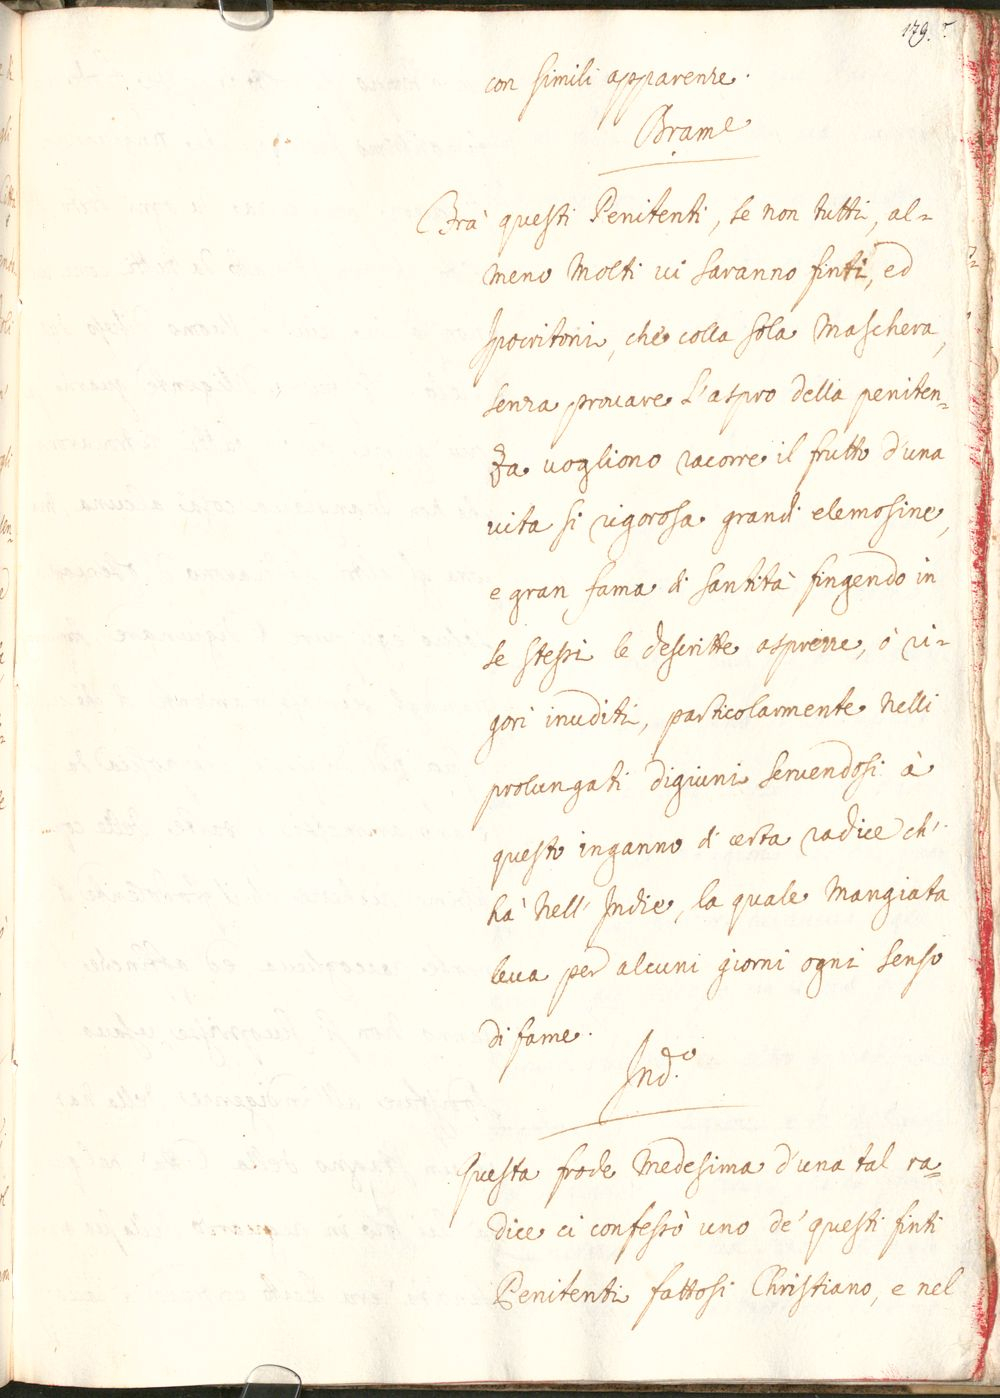 179. r
con simili apparenze.
Brame
Frà questi Penitenti, se non tutti, al=
meno Molti vi saranno finti, ed
Ipocritoni, che colla sola Maschera,
senza provare l'aspro della peniten=
za vogliono racorre il frutto d'una
vita si rigorosa grandi elemosine,
e gran fama di santità fingendo in
se stessi le descritte asprezze, ò ri=
gori inuditi, particolarmente Nelli
prolungati digiuni servendosi à
questo inganno di certa radice ch'
hà Nell' Indie, la quale Mangiata
leva per alcuni giorni ogni senso
di fame.
Ind.o
Questa frode Medesima d'una tal ra=
dice ci confessò uno de' questi finti
Penitenti fattosi Christiano, e nel